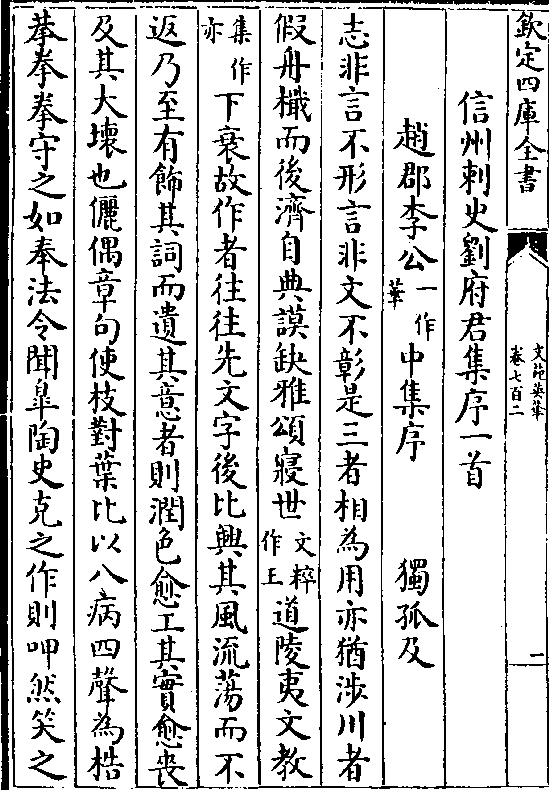 欽定四庫全書
文苑英華
卷七百二
二
信州刺史劉府君集序一首
趙郡李公一作華中集序　獨孤及
志非言不形言非文不彰是三者相為用亦猶涉川者
假舟檝而後濟自典謨缺雅頌寢世文粹作王道陵夷文教
集作亦下衰故作者往往先文字後比興其風流蕩而不
返乃至有飾其詞而遺其意者則潤色愈工其實愈喪
及其大壞也儷偶章句使枝對葉比以八病四聲為梏
拲拳拳守之如奉法令聞臯陶史克之作則呷然笑之